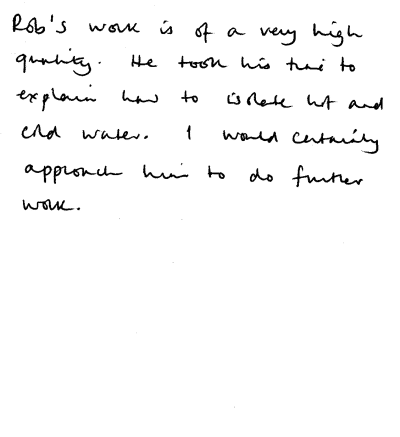 Rob's work is of a very high
quality. He took his time to
explain how to isolate hot and
cold water. I would certainly
approach him to do further
work.